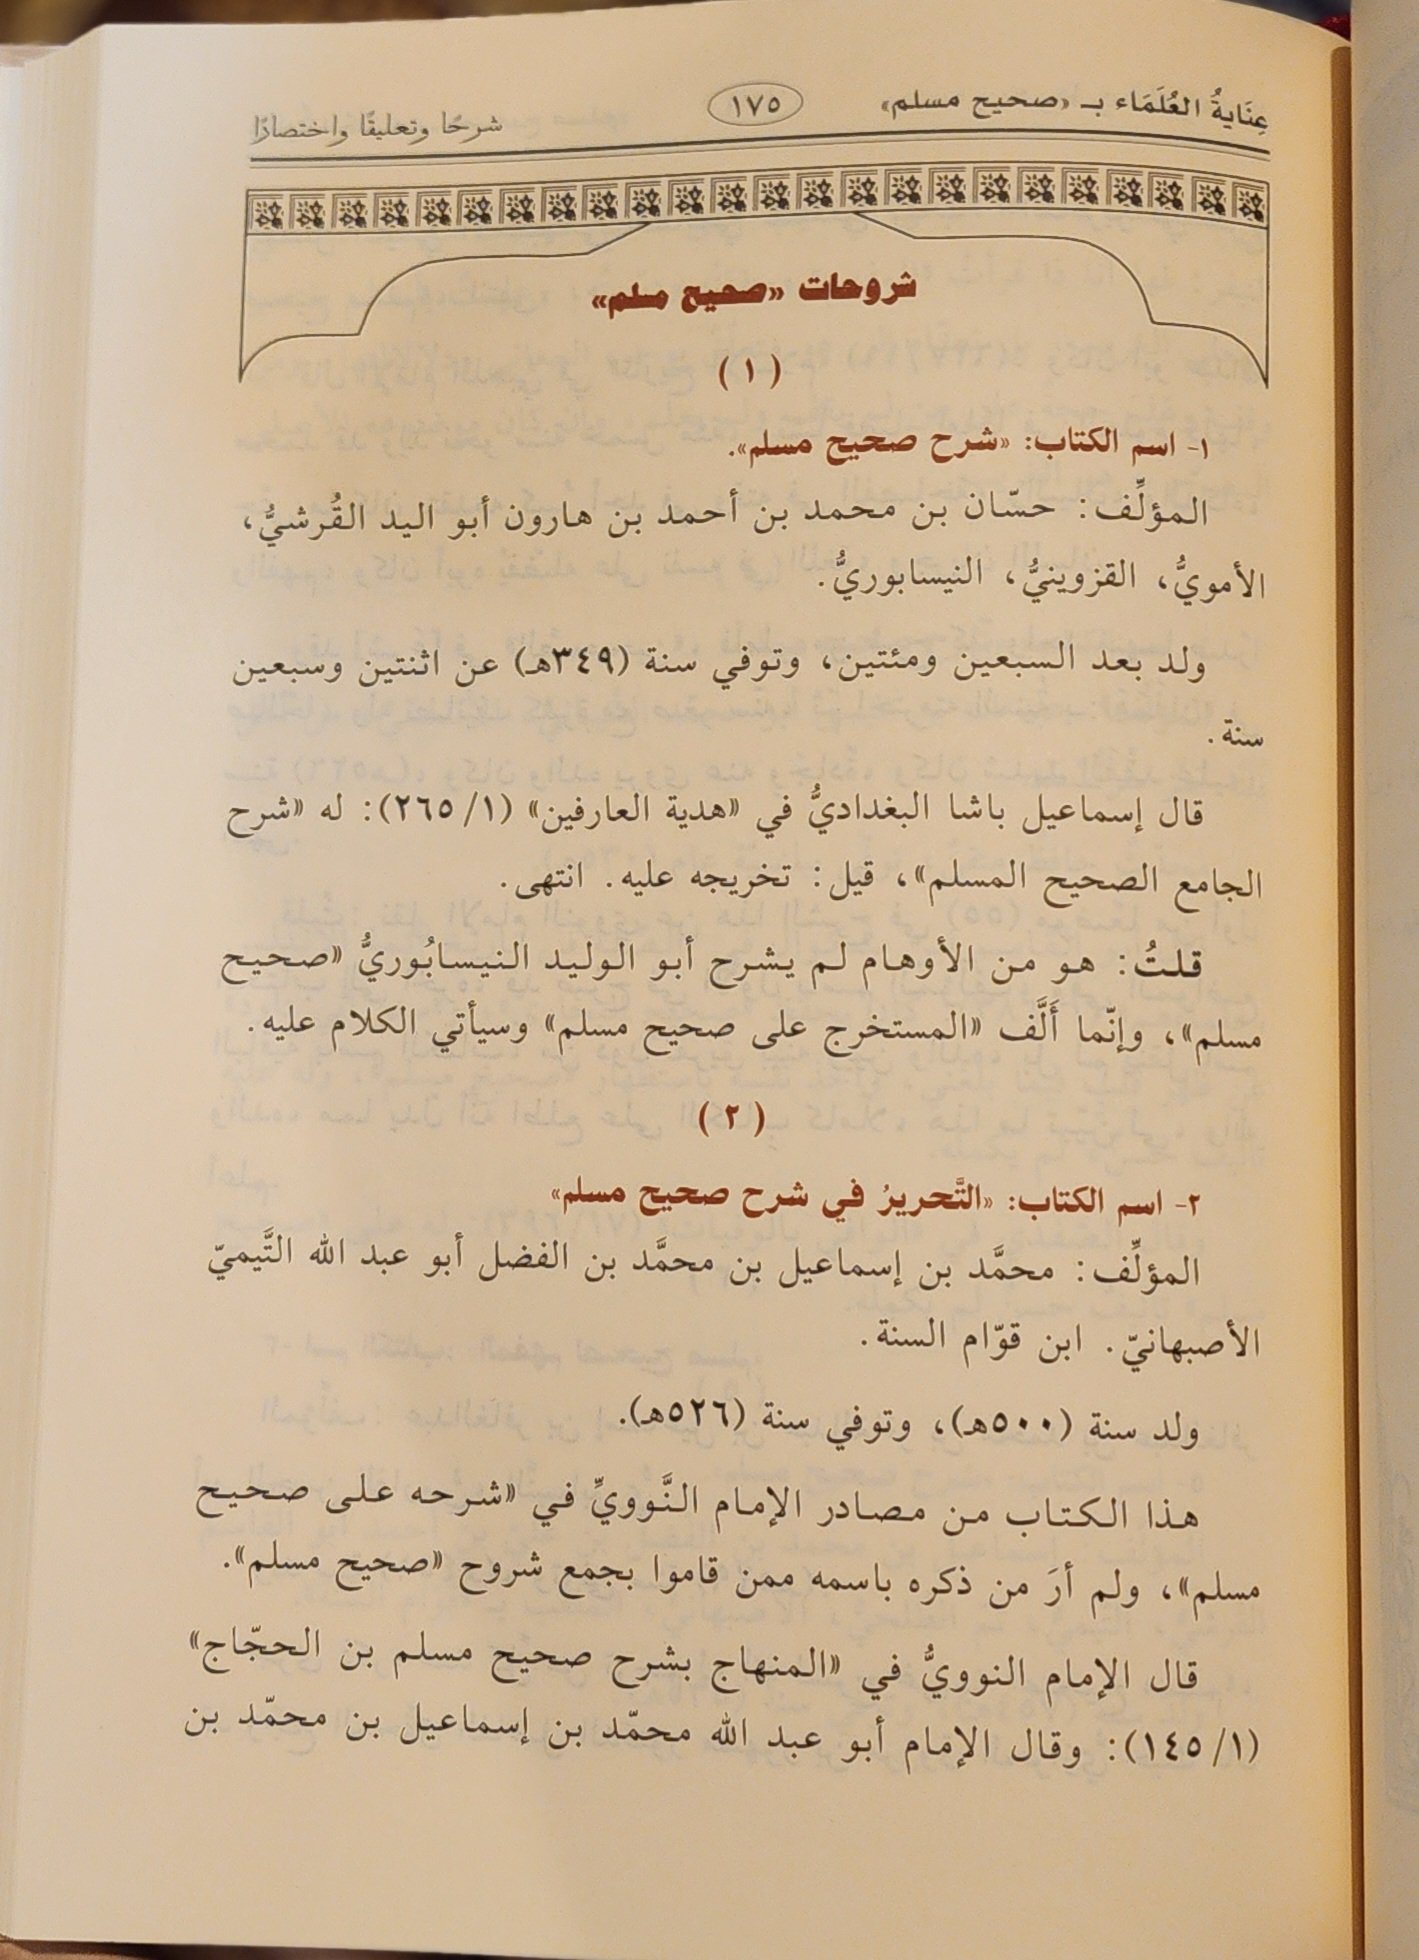 عِنَايةُ العُلَمَاء بـ «صحيح مسلم»
١٧٥
شرحًا وتعليقًا واختصارًا
شروحات «صحيح مسلم»
(١)
١- اسم الكتاب: «شرح صحيح مسلم».
المؤلِّف: حسّان بن محمد بن أحمد بن هارون أبو اليد القُرشيُّ،
الأمويُّ، القزوينيُّ، النيسابوريُّ.
ولد بعد السبعين ومئتين، وتوفي سنة (٣٤٩هـ) عن اثنتين وسبعين
سنة.
قال إسماعيل باشا البغداديُّ في «هدية العارفين» (١/ ٢٦٥): له «شرح
الجامع الصحيح المسلم»، قيل: تخريجه عليه. انتهى.
قلتُ: هو من الأوهام لم يشرح أبو الوليد النيسابُوريُّ «صحيح
مسلم»، وإنّما أَلَّف «المستخرج على صحيح مسلم» وسيأتي الكلام عليه.
(٢)
٢- اسم الكتاب: «التَّحريرُ في شرح صحيح مسلم»
المؤلِّف: محمَّد بن إسماعيل بن محمَّد بن الفضل أبو عبد الله التَّيميّ
الأصبهانيّ. ابن قوّام السنة.
ولد سنة (٥٠٠هـ)، وتوفي سنة (٥٢٦هـ).
هذا الكتاب من مصادر الإمام النَّوويِّ في «شرحه على صحيح
مسلم»، ولم أرَ من ذكره باسمه ممن قاموا بجمع شروح «صحيح مسلم».
قال الإمام النوويُّ في «المنهاج بشرح صحيح مسلم بن الحجّاج»
(١/ ١٤٥): وقال الإمام أبو عبد الله محمّد بن إسماعيل بن محمّد بن